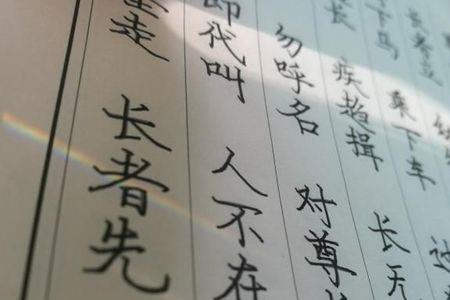 坐走 长者先
即代叫 人不在
勿呼名 对尊
长 疾趋揖 长
下马 乘下车 过
长者立 幼